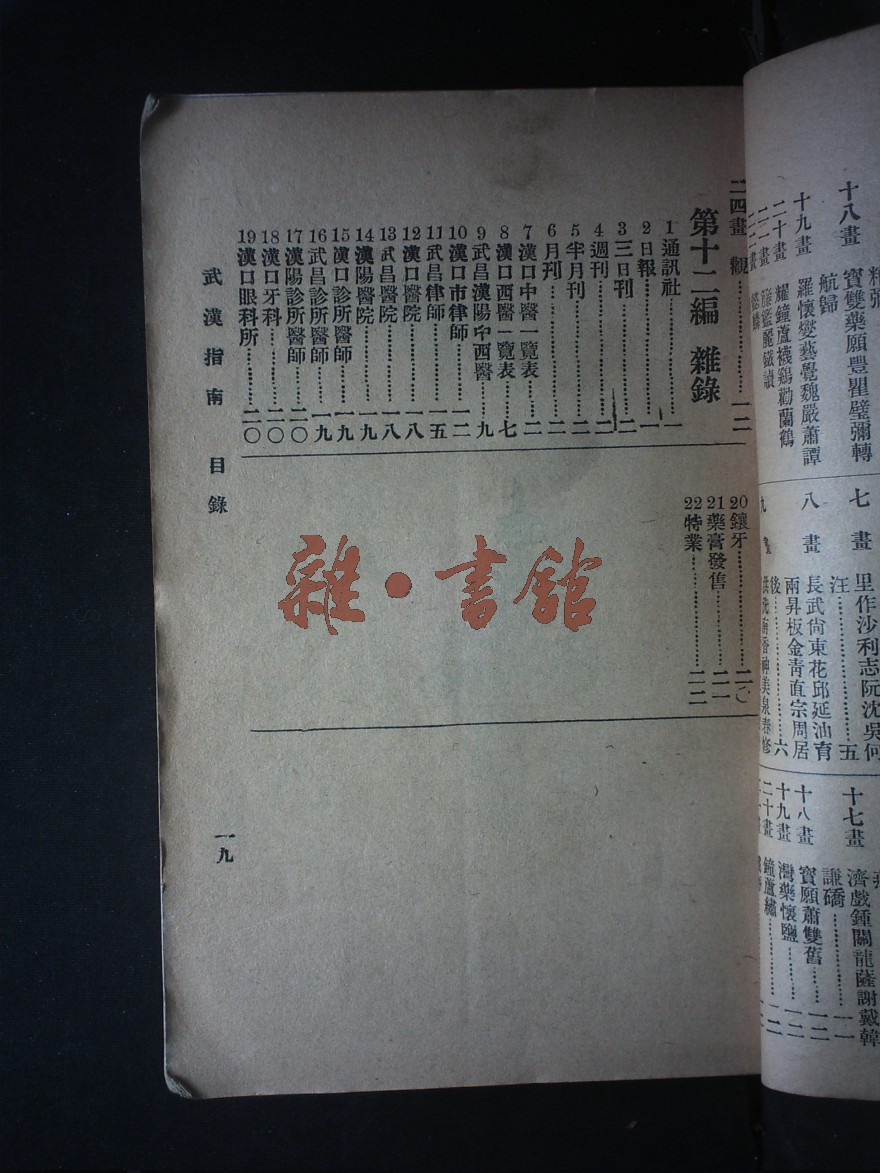 十八畫
寶雙藥願豐瞿璧彌轉
航歸
十九畫
羅懷變藝覺魏嚴蕭譚
二十畫
耀鐘蘆襪鷄勸蘭鶴
七畫
里作沙利志阮沈吳何
汪……五
八畫
長武尙東花邱延油育
兩昇板金靑直宗周居
後……六
十七畫
濟戲鍾關龍薩謝戴韓
謙礄……一一
十八畫
寶願蕭雙舊……一二
十九畫
灣藥懷鹽……一二
二十畫
鐘蘆繡……一二
二四畫 觀……一二
第十二編 雜錄
1通訊社……一
2日報……一
3三日刊……二
4週刊……二
5半月刊……二
6月刊……二
7漢口中醫一覽表……二
8漢口西醫一覽表……七
9武昌漢陽中西醫……九
10漢口市律師……一二
11武昌律師……一五
12漢口醫院……一八
13武昌醫院……一八
14漢陽醫院……一九
15漢口診所醫師……一九
16武昌診所醫師……一九
17漢陽診所醫師……二〇
18漢口牙科……二〇
19漢口眼科所……二〇
20鑲牙……二〇
21藥膏發售……二一
22特業……二二
武漢指南 目錄
一九
雜·書館